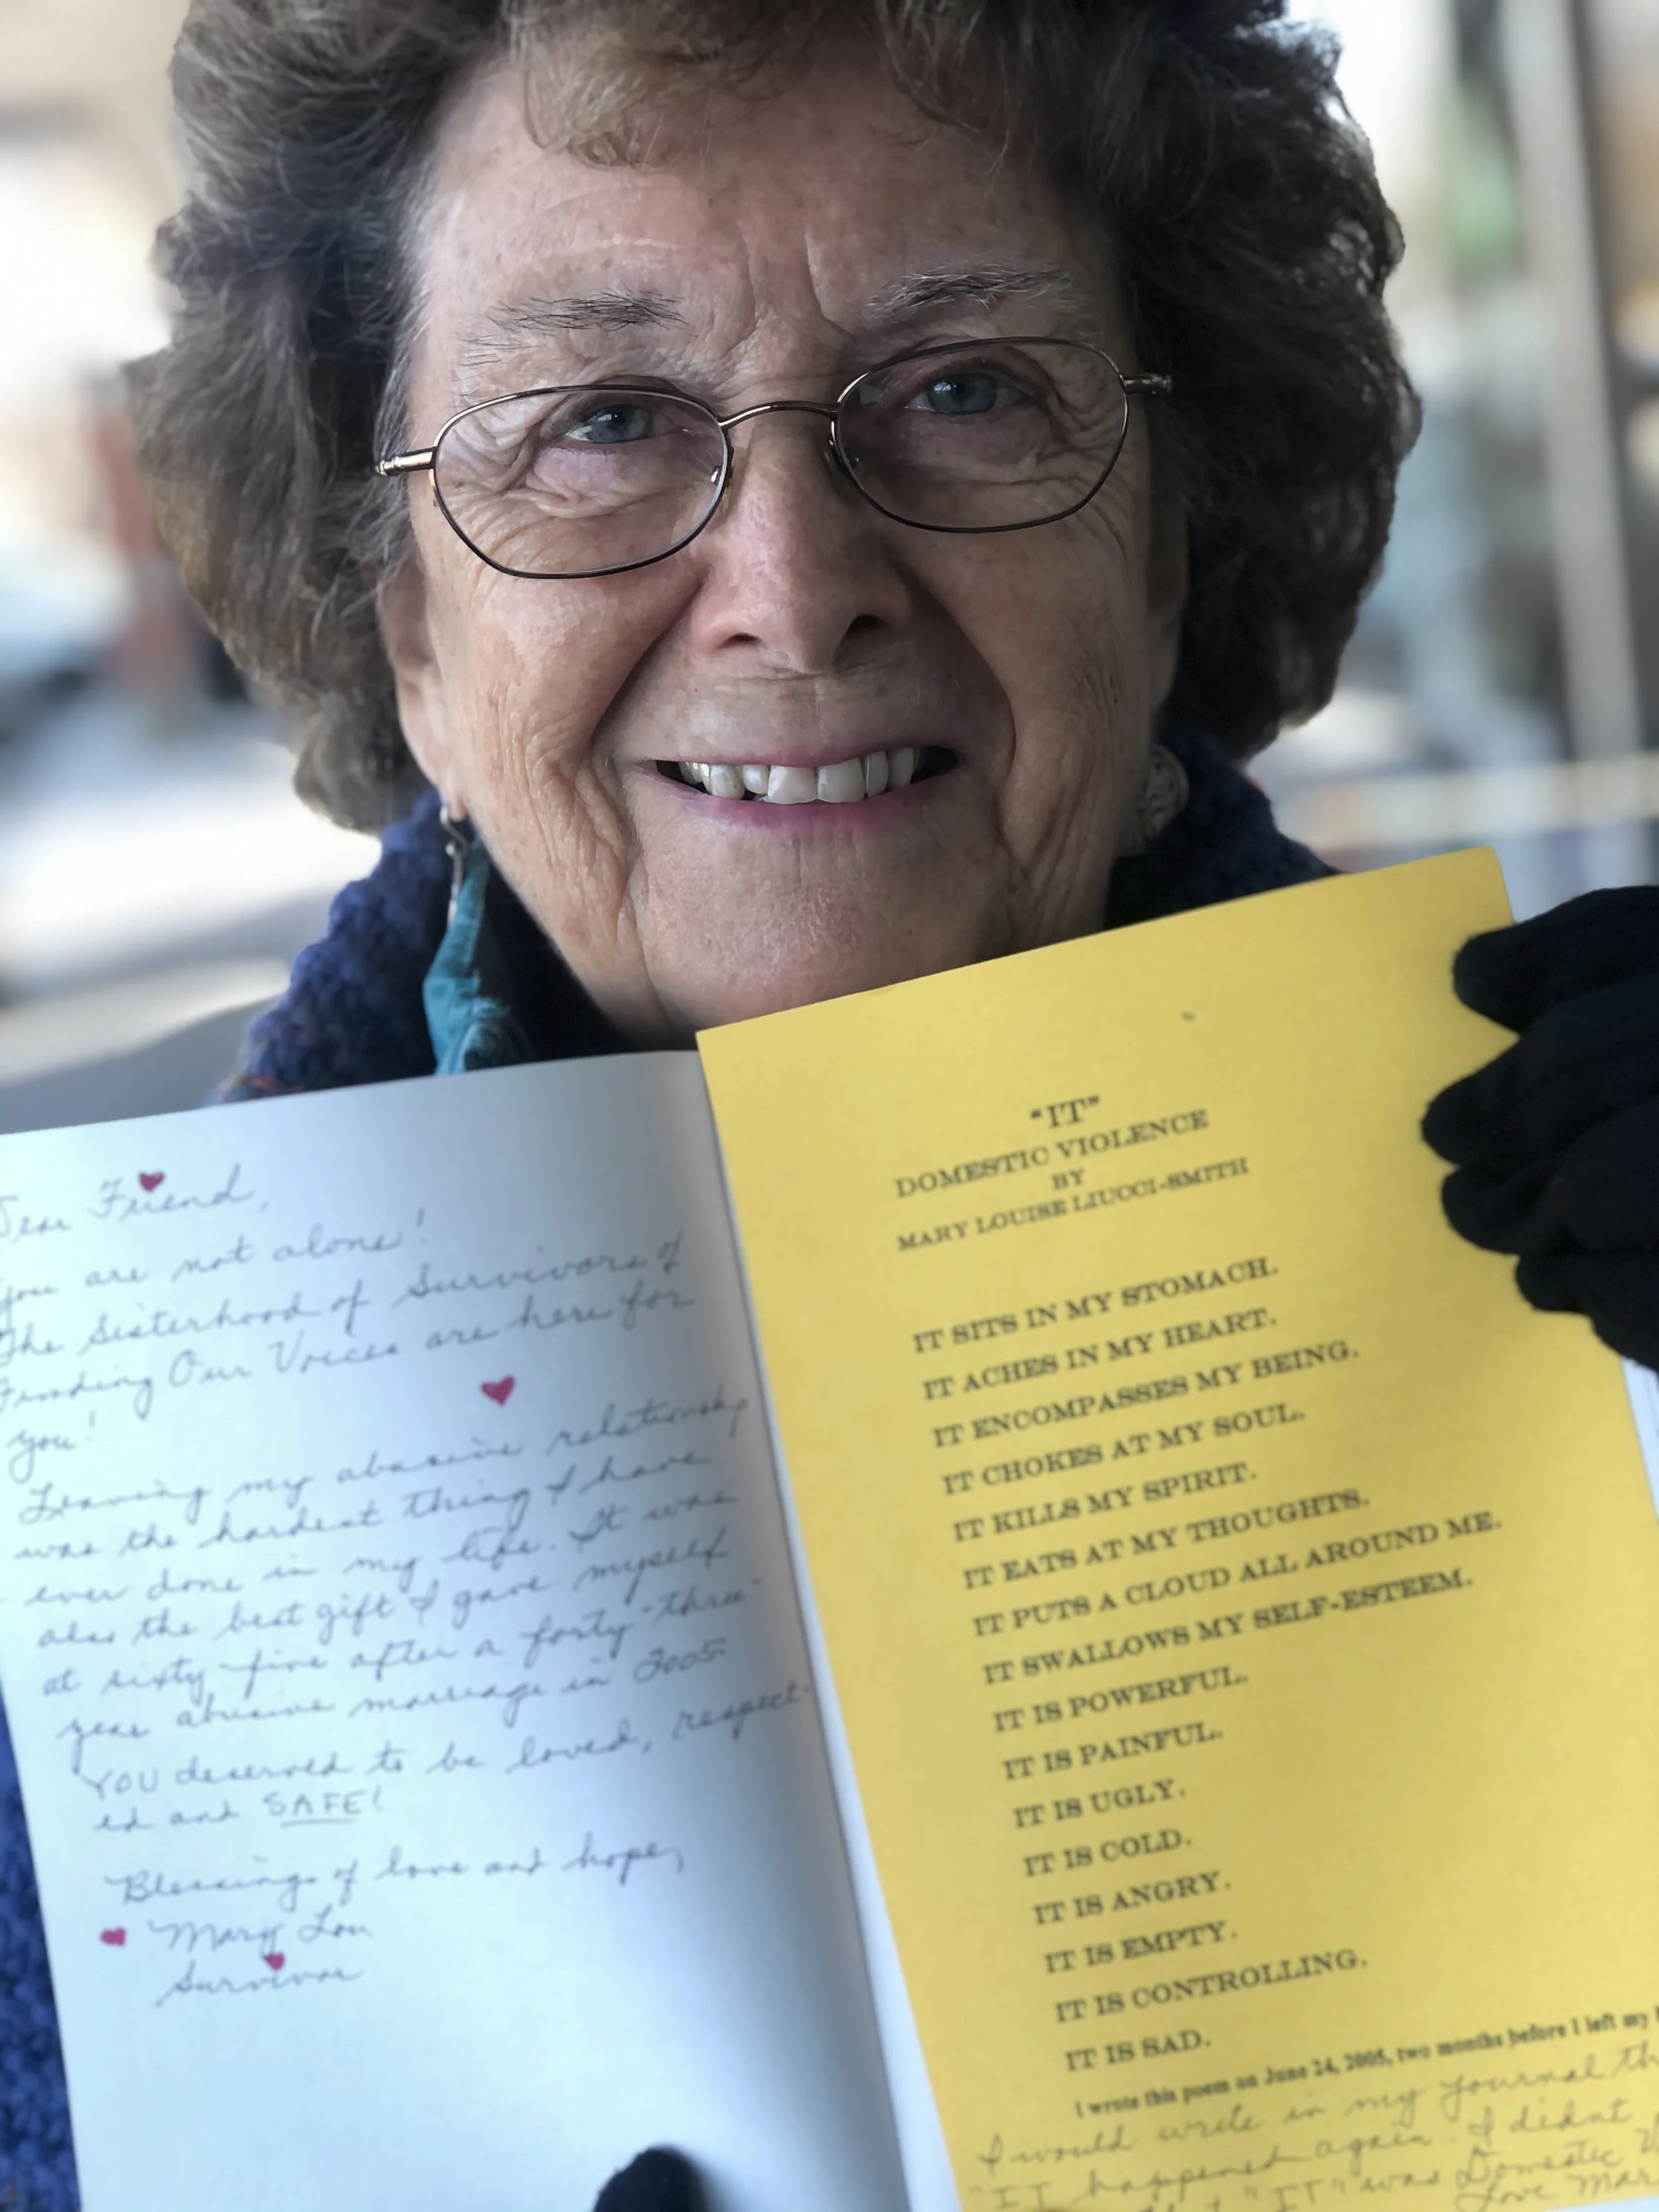 Dear Friend,
You are not alone!
The Sisterhood of Survivors of
Finding Our Voices are here for
you!
Leaving my abusive relationship
was the hardest thing I have
ever done in my life. It was
also the best gift I gave myself
at sixty-five after a forty-three-
year abusive marriage in 2005
YOU deserved to be loved, respect-
ed and SAFE!
Blessings of love and hope,
Mary Lou
Survivor
"IT"
DOMESTIC VIOLENCE
BY
MARY LOUISE LIUCCI-SMITH
IT SITS IN MY STOMACH.
IT ACHES IN MY HEART.
IT ENCOMPASSES MY BEING.
IT CHOKES AT MY SOUL.
IT KILLS MY SPIRIT.
IT EATS AT MY THOUGHTS.
IT PUTS A CLOUD ALL AROUND ME.
IT SWALLOWS MY SELF-ESTEEM.
IT IS POWERFUL.
IT IS PAINFUL.
IT IS UGLY.
IT IS COLD.
IT IS ANGRY.
IT IS EMPTY.
IT IS CONTROLLING.
IT IS SAD.
I wrote this poem on June 24, 2005, two months before I left my
I would write in my journal
"IT happened again. I didnt
"IT" was Domestic
Love